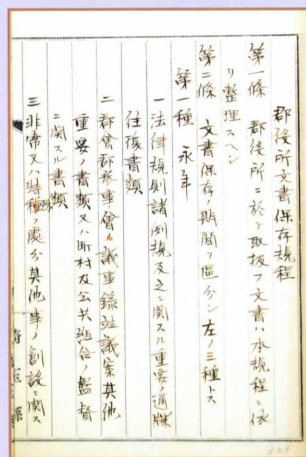 郡役所文書保存規程
第一條　郡役所ニ於テ取扱フ文書ハ本規程ニ依
リ整理スヘシ
第二條　文書保存ノ期間ヲ區分シ左ノ三種トス
第一種　永年
一 法律規則諸例規及之ニ関スル重要ノ通牒
往復書類
二 郡會郡参事會ノ議事錄並議案其他
重要ノ書類又ハ町村及公共組合ノ監督
ニ関スル書類
三 非常又ハ特種ノ處分其他事ノ創設ニ関ス